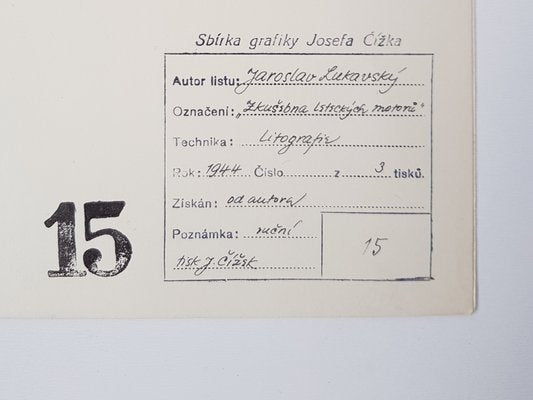 Sbírka grafiky Josefa Čížka
Autor listu: Jaroslav Lukavský
Označení: „Zkušebna leteckých motorů“
Technika: Litografie
Rok: 1944 Číslo z 3 tisků.
Získán: od autora
Poznámka: ruční
tisk J. Čížek
15
15